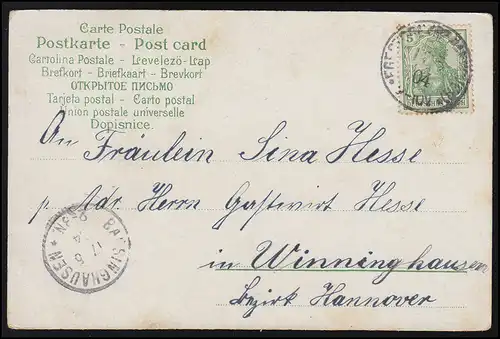 Carte Postale
Postkarte - Post card
Cartolina Postale - Levelező-Lap
Brefkort - Briefkaart - Brevkort
ОТКРЫТОЕ ПИСЬМО
Tarjeta postal - Carto postal
Union postale universelle
Dopisnice.
04
An Fräulein Sina Hesse
p. Adr. Herrn Gastwirt Hesse
in Winninghausen
Bezirk Hannover
BARSINGHAUSEN
17 5